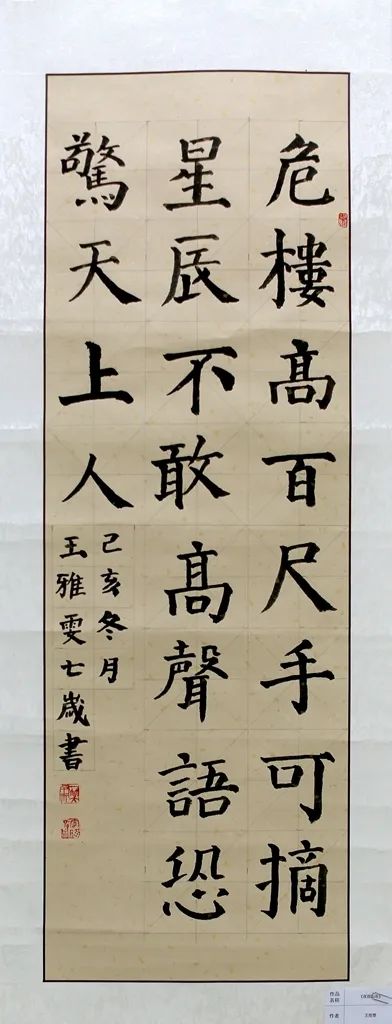 危樓髙百尺手可摘
星辰不敢髙聲語恐
驚天上人
己亥冬月
王雅雯七歲書
作品
名称
作者